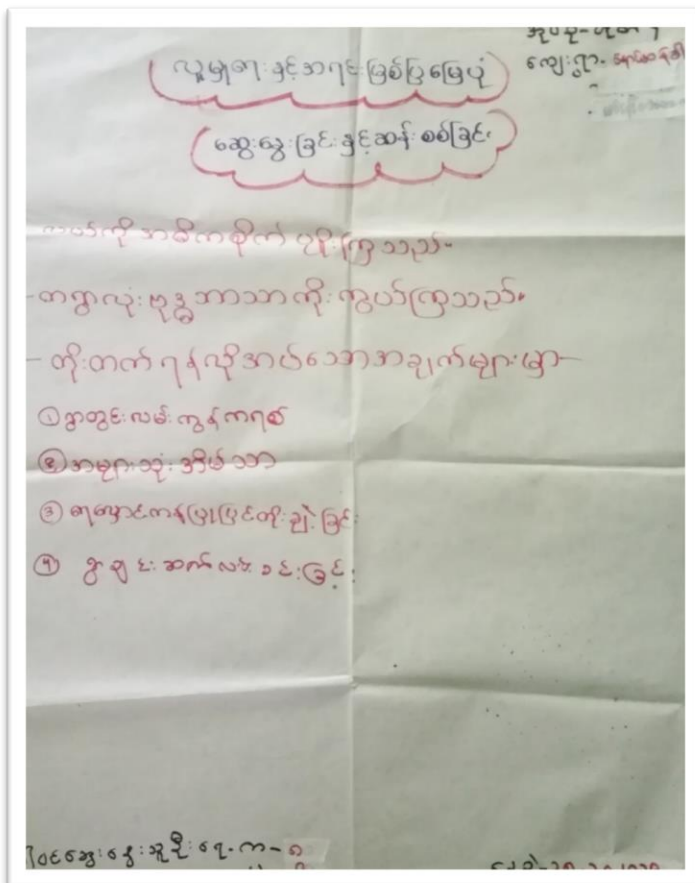 ကျေးရွာ-
လူမှုရေးနှင့်အရင်းမြစ်ပြမြေပုံ
ဆွေးနွေးခြင်းနှင့်ဆန်းစစ်ခြင်း
အဓိကစိုက်ပျိုးကြသည်။
-တရွာလုံးဗုဒ္ဓဘာသာကိုးကွယ်ကြသည်။
-တိုးတက်ရန်လိုအပ်သောအချက်များမှာ-
① ရွာတွင်းလမ်းကွန်ကရစ်
② အများသုံးအိမ်သာ
③ ရေလှောင်ကန်ပြုပြင်တိုးချဲ့ခြင်း
④ ရွာချင်းဆက်လမ်းခင်းခြင်း
ပါဝင်ဆွေးနွေးသူဦးရေ-ကျား-၈